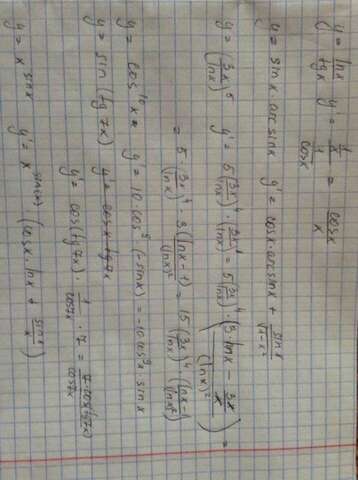 y = lnx / tgx   y' = (1/x) / (1/cosx) = cosx / x
y = sinx arcsinx   y' = cosx · arcsinx + sinx / √(1-x²)
y = (3x / lnx)⁵   y' = 5(3x / lnx)⁴ · (3x / lnx)' = 5(3x / lnx)⁴ · (3 lnx - 3x/x) / (lnx)² =
= 5 · (3x / lnx)⁴ · 3(lnx - 1) / (lnx)² = 15(3x / lnx)⁴ · (lnx - 1) / (lnx)²
y = cos¹⁰x =   y' = 10 · cos⁹ · (-sinx) = -10 cos⁹x · sinx
y = sin(tg7x)   y' = cosx · tg7x
y' = cos(tg7x) · 1 / cos7x · 7 = 7 · cos(tg7x) / cos7x
y = x^sinx   y' = x^sin(x) (cosx · lnx + sinx / x)